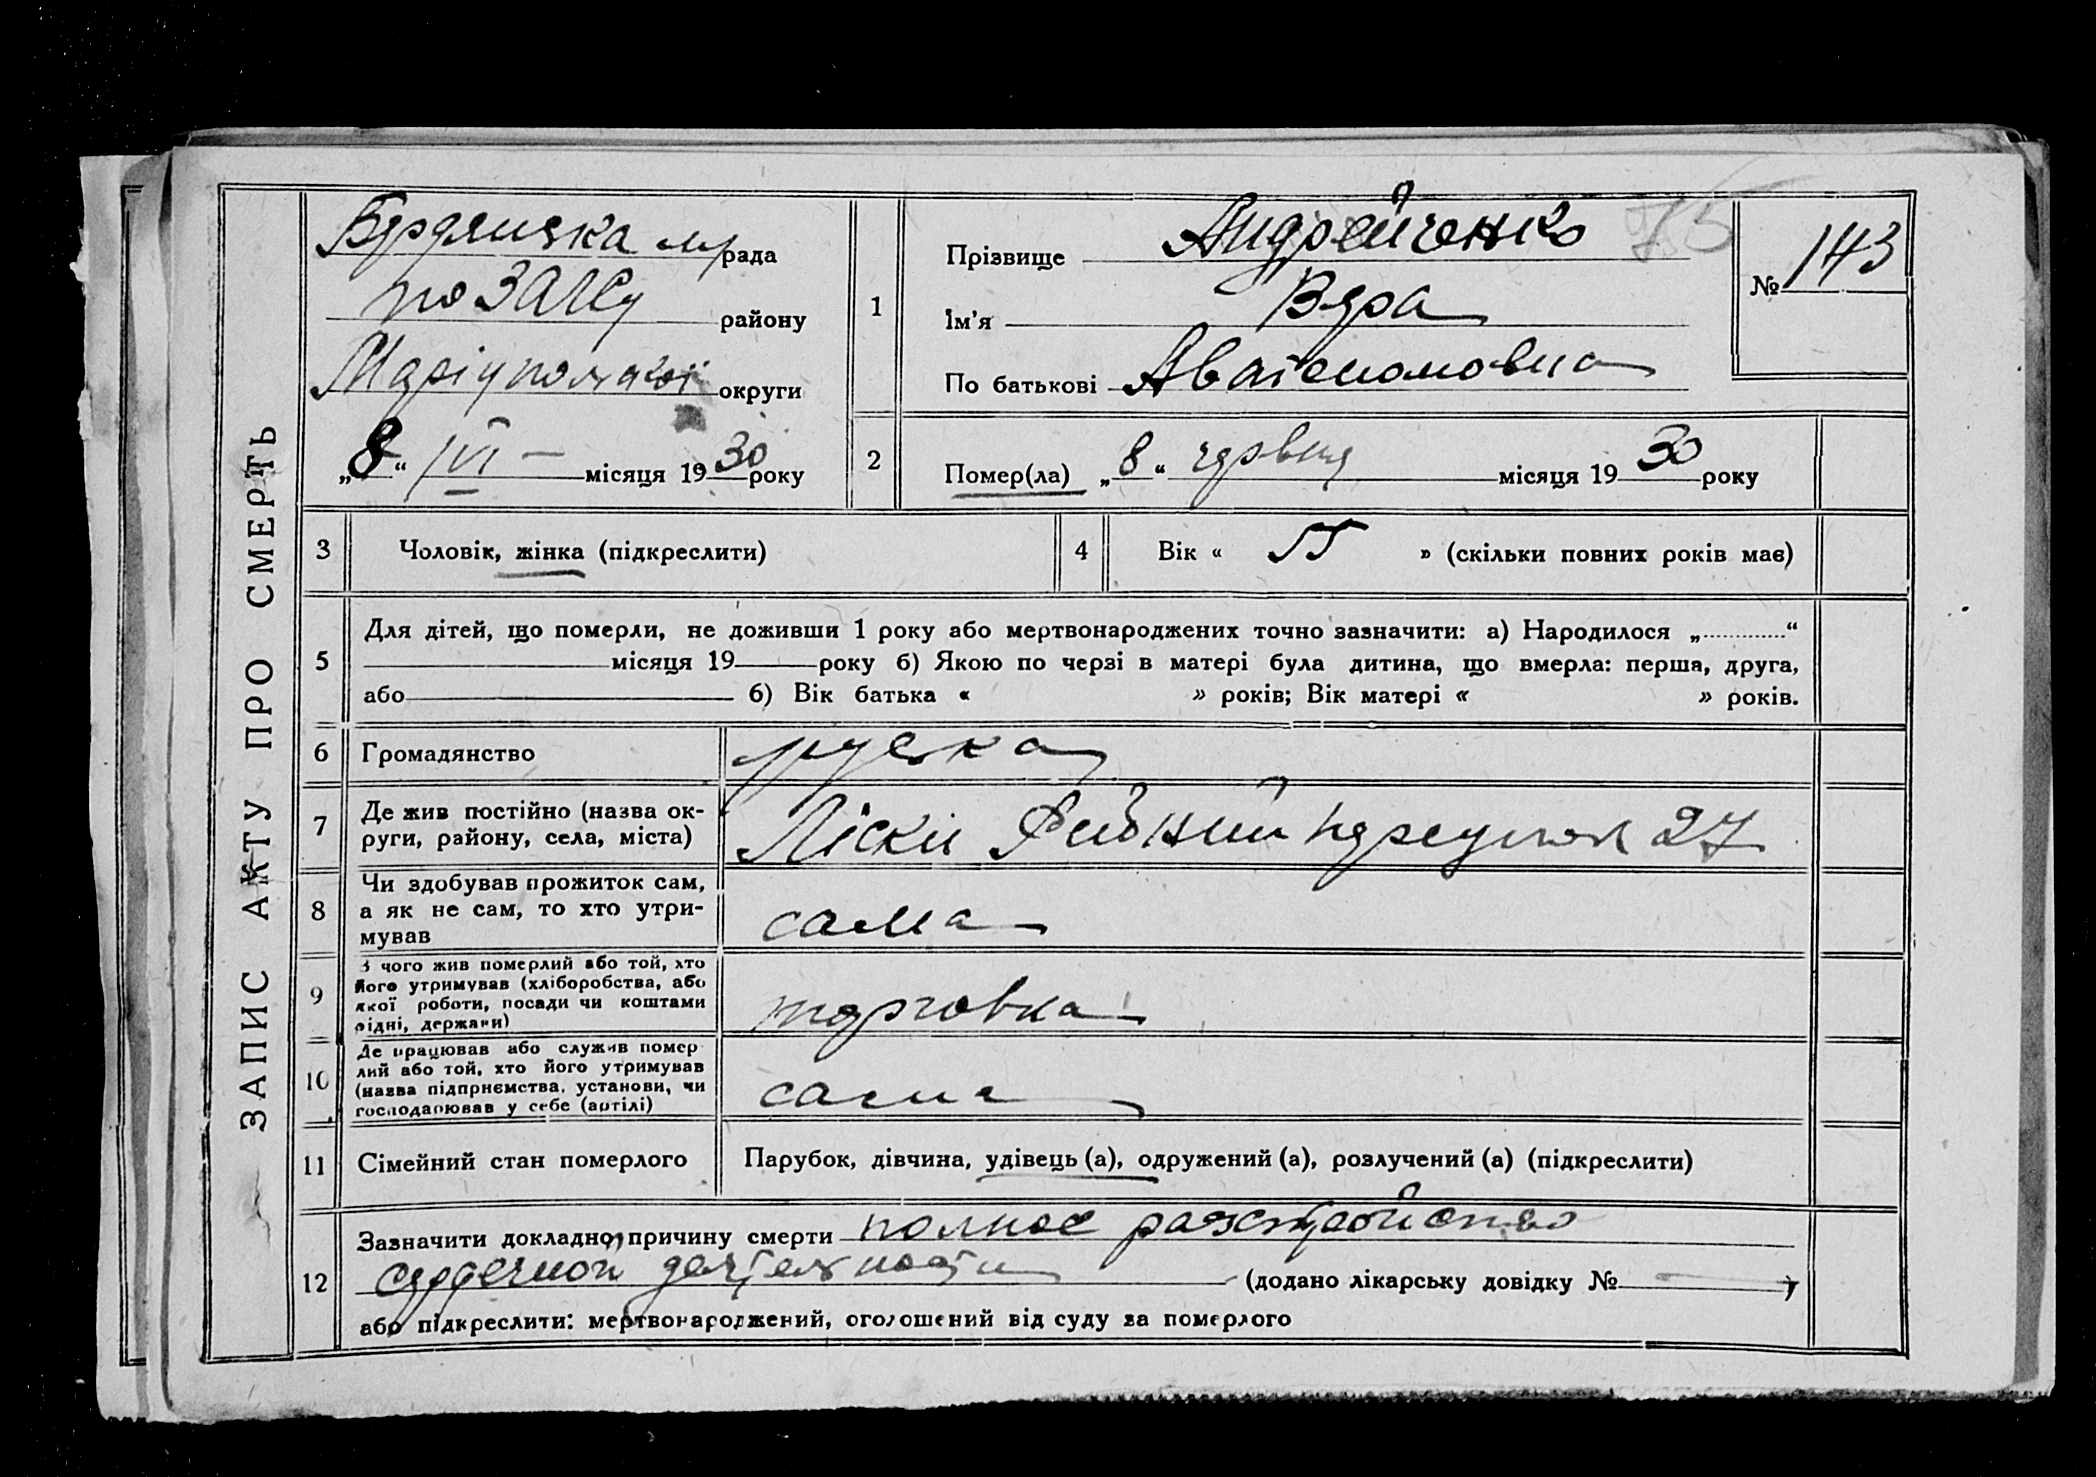 ЗАПИС АКТУ ПРО СМЕРТЬ
Бердянська м/рада
по ЗАГСу району
Маріупольскої округи
„8“ /VI — місяця 1930 року
1
Прізвище Андрейченко 75
Ім'я Вера
По батькові
№ 143
2 Помер(ла) „8“ червня місяця 1930 року
3 Чоловік, жінка (підкреслити)
4 Вік « 55 » (скільки повних років має)
5 Для дітей, що померли, не доживши 1 року або мертвонароджених точно зазначити: а) Народилося „............“
місяця 19 року б) Якою по черзі в матері була дитина, що вмерла: перша, друга,
або б) Вік батька « » років; Вік матері « » років.
6 Громадянство руска
7 Де жив постійно (назва ок-
руги, району, села, міста)
Ліски переулок 27
8 Чи здобував прожиток сам,
а як не сам, то хто утри-
мував
сама
9 З чого жив померлий або той, хто
його утримував (хліборобства, або
якої роботи, посади чи коштами
рідні, держави)
торговка
10 Де працював або служив помер
лий або той, хто його утримував
(назва підприємства, установи, чи
господарював у себе (артілі)
сама
11 Сімейний стан померлого Парубок, дівчина, удівець (а), одружений (а), розлучений (а) (підкреслити)
12 Зазначити докладно причину смерти полное расстройство
сердечной деятельности (додано лікарську довідку № )
або підкреслити: мертвонароджений, оголошений від суду за померлого